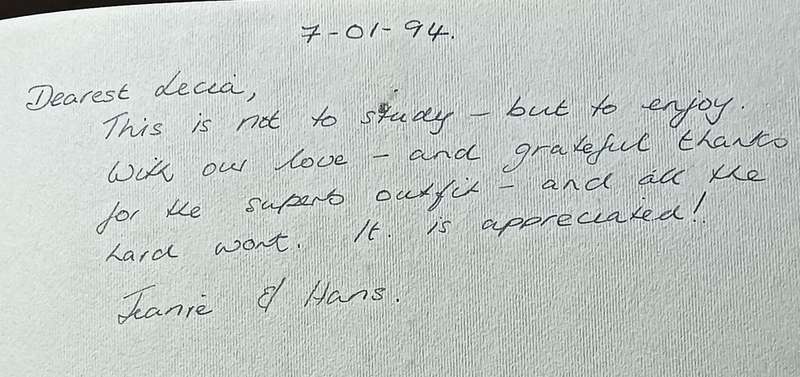 7-01-94.
Dearest Lecia,
This is not to study - but to enjoy.
With our love - and grateful thanks
for the superb outfit - and all the
hard work. It is appreciated!
Jeanie & Hans.